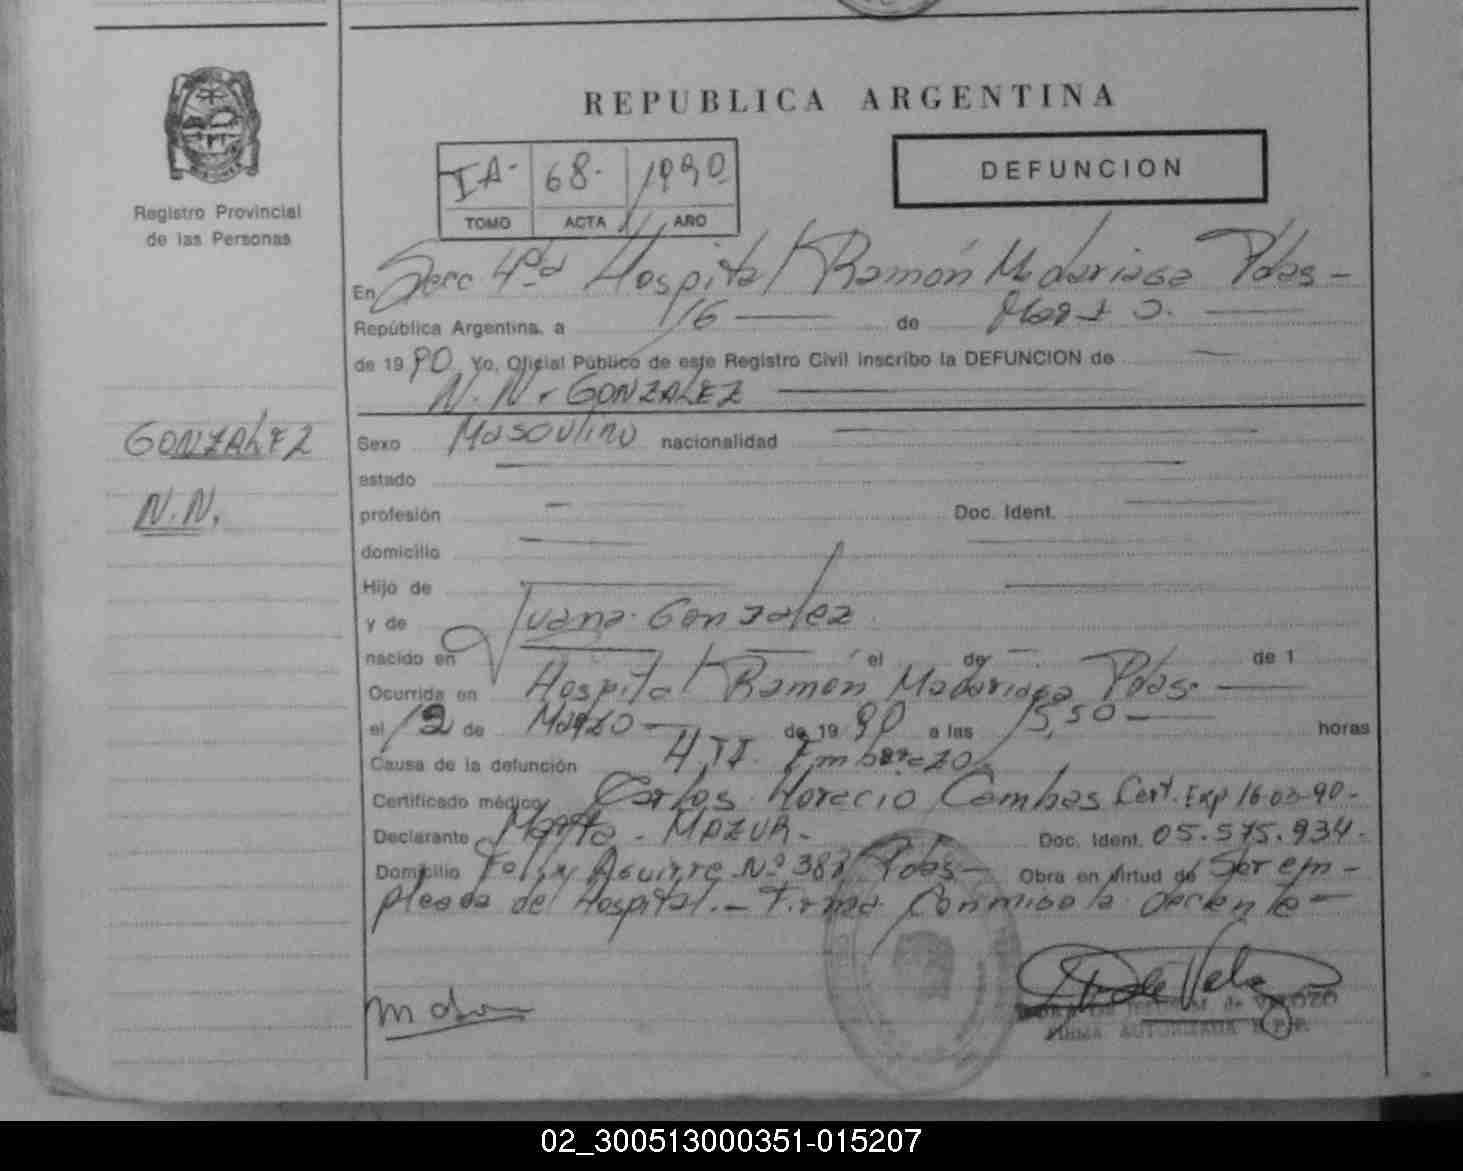 REPUBLICA ARGENTINA
IA- 68- 1990
TOMO ACTA AÑO
DEFUNCION
Registro Provincial
de las Personas
En Secc 4º Hospital Ramón Madariaga Pdas-
República Argentina, a 16 de Marzo.
de 1990 Yo, Oficial Público de este Registro Civil inscribo la DEFUNCION de
N.N. GONZALEZ
GONZALEZ
N.N.
Sexo Masculino nacionalidad
estado
profesión Doc. Ident.
domicilio
Hijo de
y de Juana Gonzalez.
nacido en el de de 1
Ocurrida en Hospital Ramón Madariaga Pdas-
el 12 de Marzo de 1990 a las 5,50 horas
Causa de la defunción Embarazo
Certificado médico Carlos Horacio Cambas Cert. Exp 16-03-90-
Declarante Marta - MAZUR- Doc. Ident. 05.575.934-
Domicilio Aguirre Nº 388 Pdas- Obra en virtud de Ser em-
pleada del Hospital.- Firma Conmigo la
FIRMA AUTORIZADA R.P.P.
02_300513000351-015207